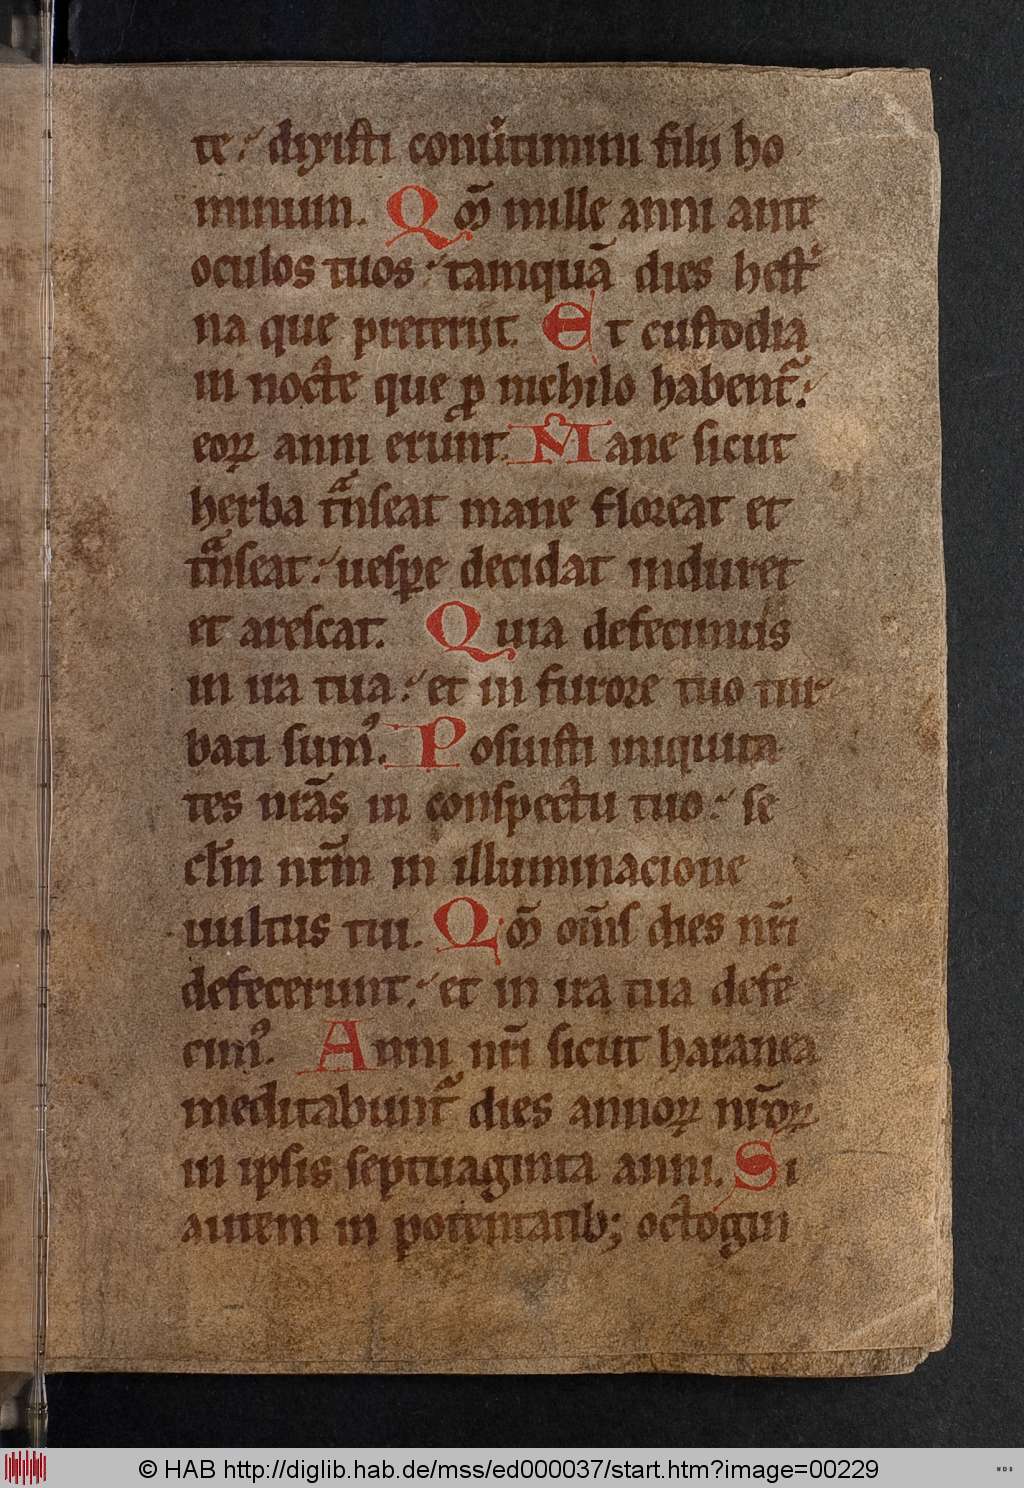 te: dixisti conu͛timini filij ho
minum. Qm̅ mille anni ante
oculos tuos: tamqua̅ dies hest͛
na que preterijt. Et custodia
in nocte que ꝓ nichilo habent᷑:
eoꝝ anni erunt. Mane sicut
herba tᷓnseat mane floreat et
tᷓnseat: uesꝑe decidat induret
et arescat. Quia defecimus
in ira tua: et in furore tuo tur
bati sumꝰ. Posuisti iniquita
tes nr̅as in conspectu tuo: se
cl̅m nr̅m in illuminacione
uultus tui. Qm̅ om̅s dies nr̅i
defecerunt: et in ira tua defe
cimꝰ. Anni nr̅i sicut haranea
meditabunt᷑ dies annoꝝ nr̅oꝝ
in ipsis septuaginta anni. Si
autem in potentatib; octogin
© HAB http://diglib.hab.de/mss/ed000037/start.htm?image=00229